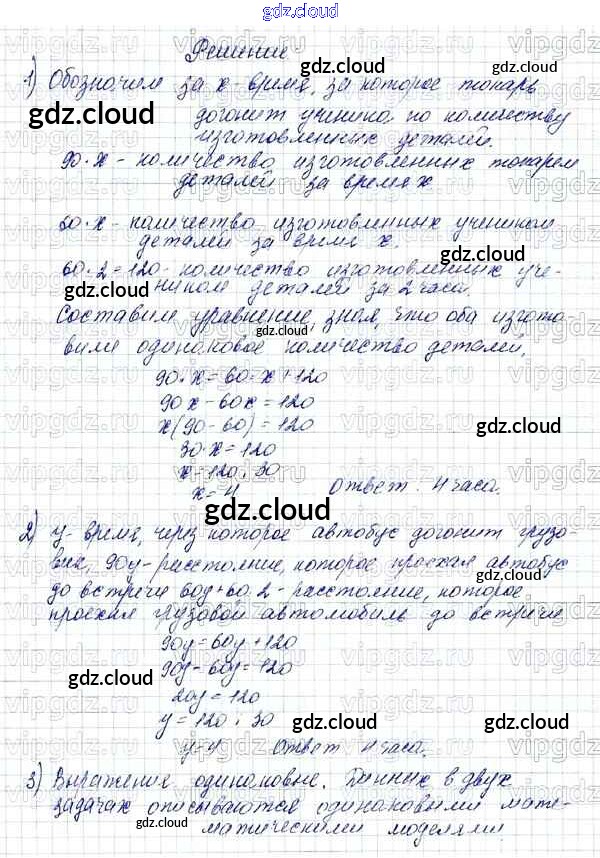 gdz.cloud
Решение
1) Обозначим за х - время, за которое токарь
догонит ученика по количеству
изготовленных деталей.
90·х - количество изготовленных токарем
деталей за время х
60·х - количество изготовленных учеником
деталей за время х.
60·2=120 - количество изготовленных уче-
ником деталей за 2 часа.
Составим уравнение, зная, что оба изгото-
вили одинаковое количество деталей,
90·х=60·х+120
90х-60х=120
х(90-60)=120
30·х=120
х=120:30
х=4 Ответ: 4 часа.
2) у- время, через которое автобус догонит грузо-
вик, 90у-расстояние, которое проехал автобус
до встречи 60у+60·2-расстояние, которое
проехал грузовой автомобиль до встречи
90у=60у+120
90у-60у=120
20у=120
у=120:30
у=4 Ответ: 4 часа.
3) Выражения одинаковые. Данных в двух
задачах описываются одинаковыми мате-
матическими моделями